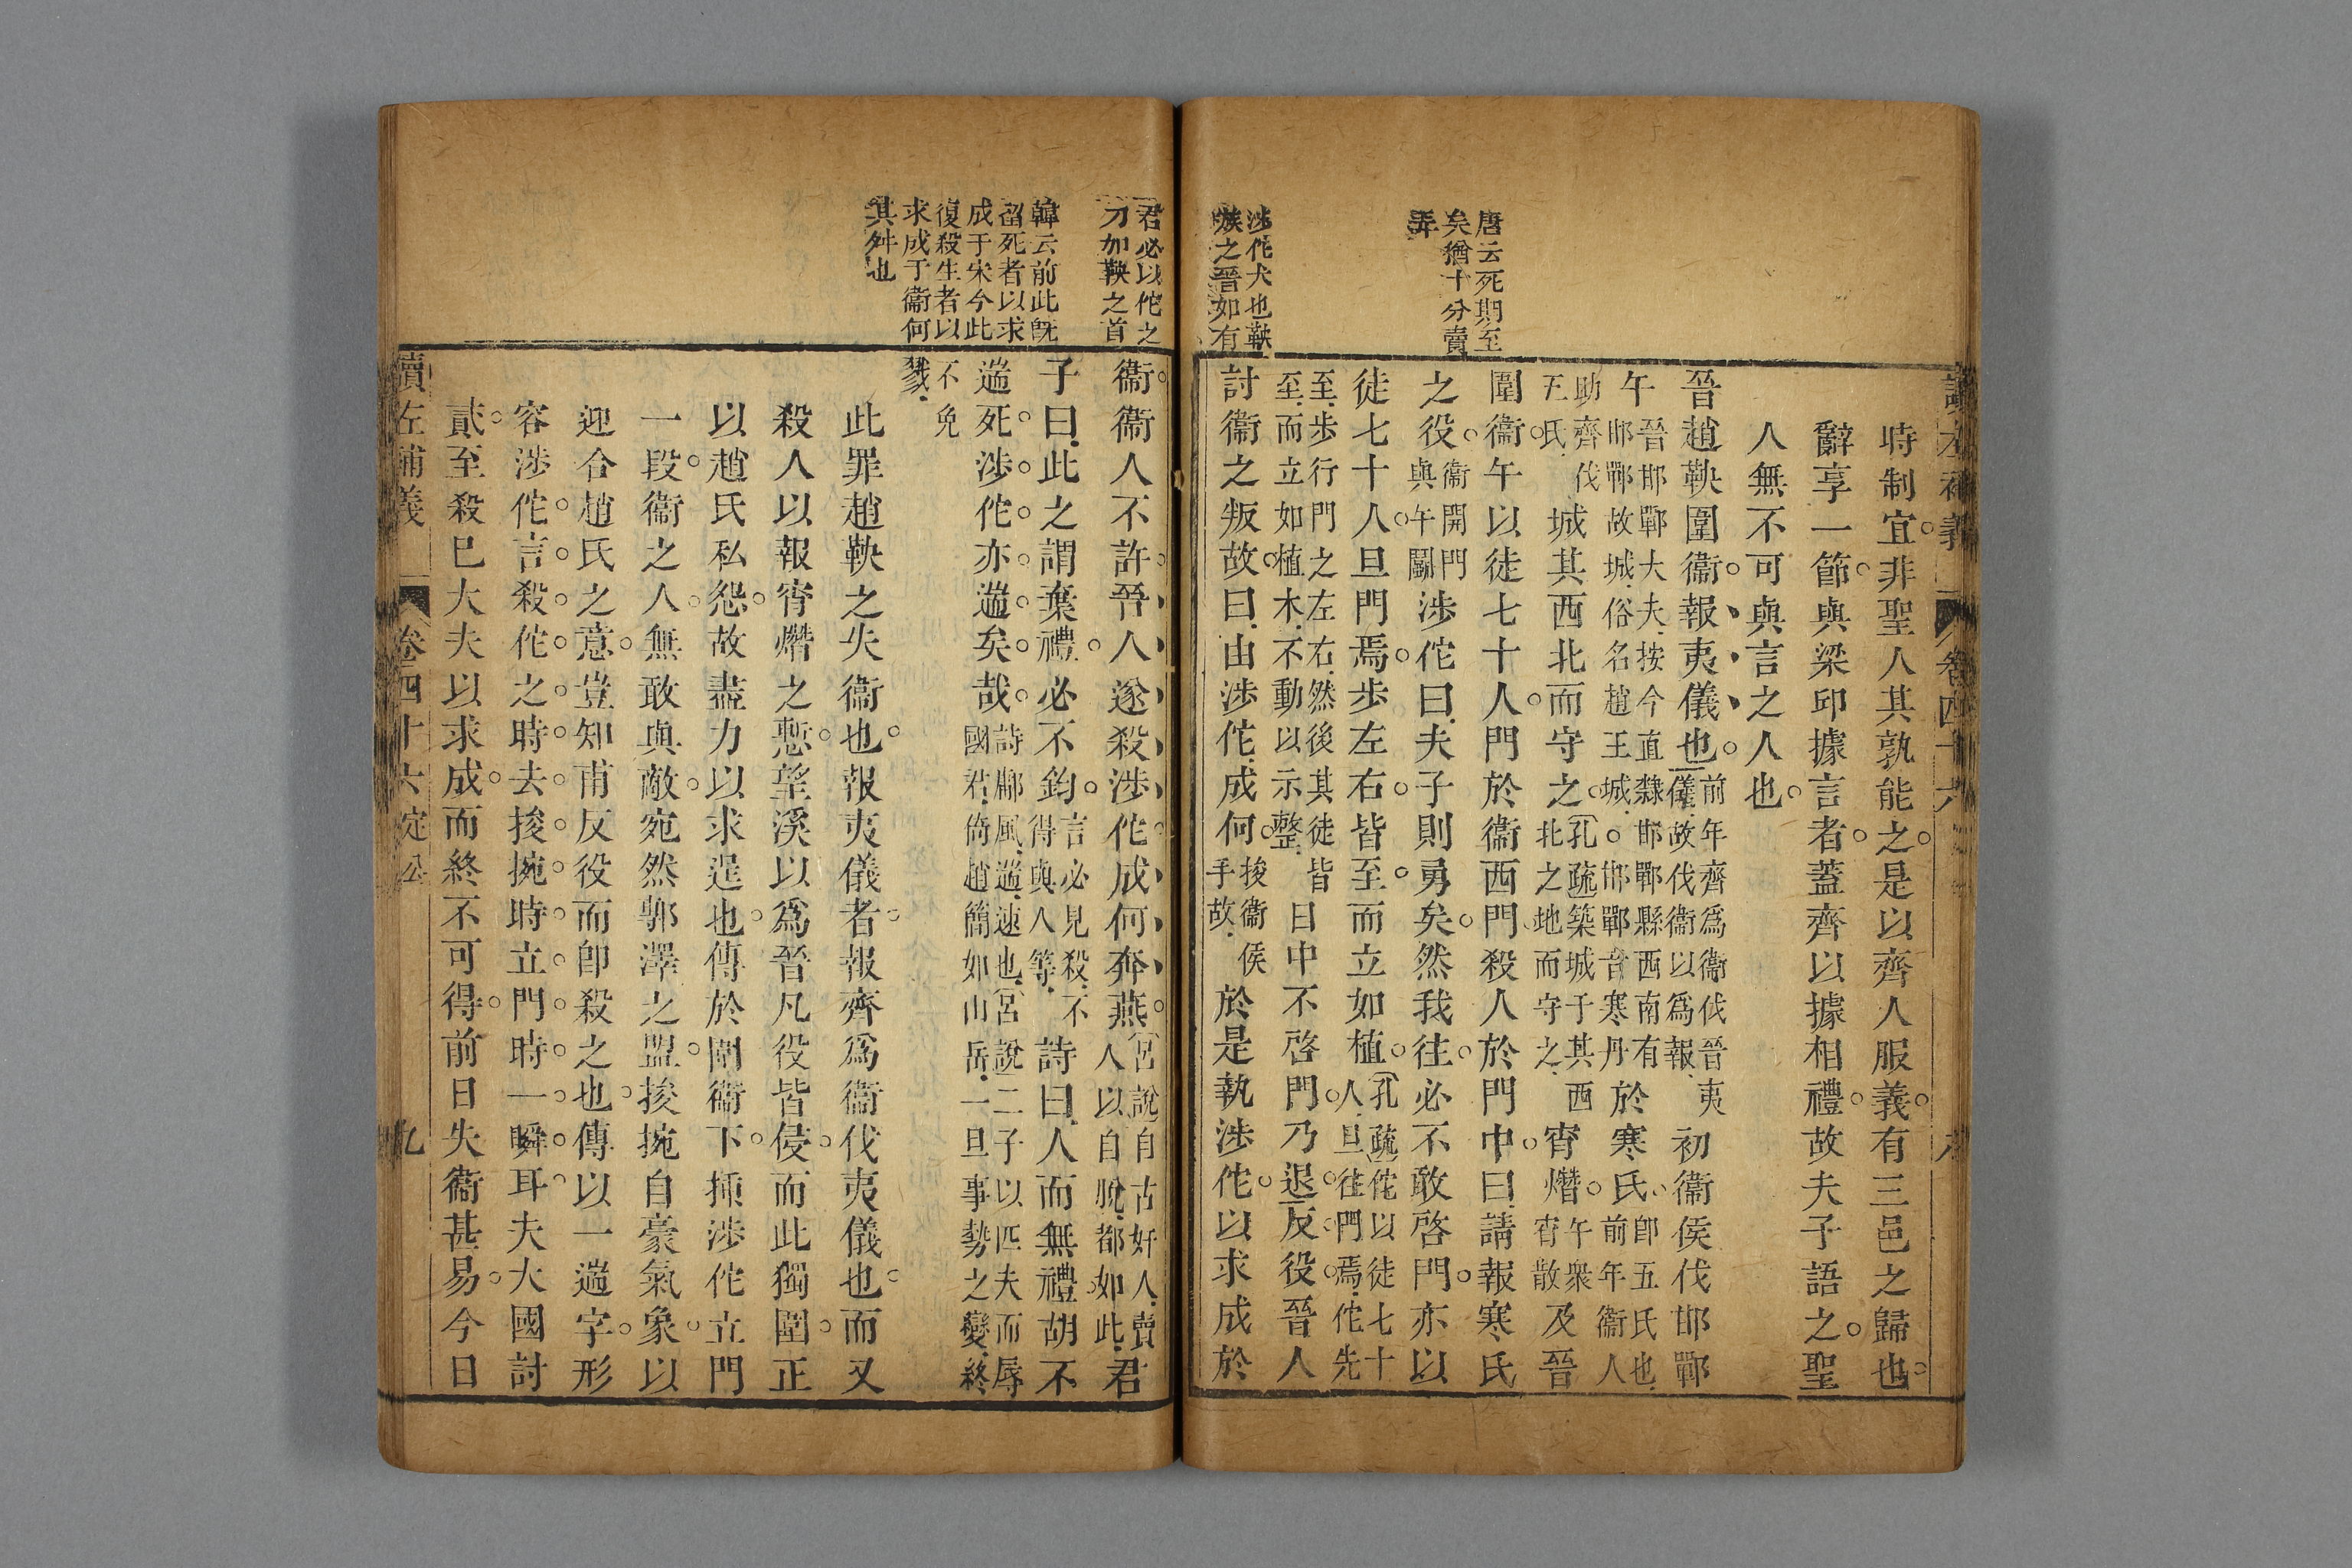 讀左補義 卷四十六 八
時制宜非聖人其孰能之是以齊人服義有三邑之歸也
辭享一節與梁邱據言者蓋齊以據相禮故夫子語之聖
人無不可與言之人也
晉趙鞅圍衞報夷儀也前年齊爲衞伐晉夷儀故伐衞以爲報初衞侯伐邯鄲
午晉邯鄲大夫按今直隸邯鄲縣西南有邯鄲故城俗名趙王城邯鄲音寒丹於寒氏卽五氏也前年衞人
助齊伐五氏城其西北而守之孔疏築城于其西北之地而守之宵熸午衆宵散及晉
圍衞午以徒七十人門於衞西門殺人於門中曰請報寒氏
之役衞開門與午鬭涉佗曰夫子則勇矣然我往必不敢啓門亦以
徒七十人旦門焉步左右皆至而立如植孔疏佗以徒七十人旦往門焉佗先
至步行門之左右然後其徒皆至而立如植木不動以示整日中不啓門乃退反役晉人
討衞之叛故曰由涉佗成何捘衞侯手故於是執涉佗以求成於
唐云死期至
矣猶十分賣
弄
涉佗犬也鞅
嗾之晉如有
君必以佗之
刀加鞅之首
韓云前此旣
留死者以求
成于宋今此
復殺生者以
求成于衞何
其舛也
衞衞人不許晉人遂殺涉佗成何奔燕宮說自古奸人賣人以自脫都如此君
子曰此之謂棄禮必不鈞言必見殺不得與人等詩曰人而無禮胡不
遄死涉佗亦遄矣哉詩鄘風遄速也宮說二子以匹夫而辱國君倚趙簡如山岳一旦事勢之變終
不免戮
此罪趙鞅之失衞也報夷儀者報齊爲衞伐夷儀也而又
殺人以報宵熸之慙望溪以爲晉凡役皆侵而此獨圍正
以趙氏私怨故盡力以求逞也傳於圍衞下揷涉佗立門
一段衞之人無敢與敵宛然鄟澤之盟捘捥自豪氣象以
迎合趙氏之意豈知甫反役而卽殺之也傳以一遄字形
容涉佗言殺佗之時去捘捥時立門時一瞬耳夫大國討
貳至殺已大夫以求成而終不可得前日失衞甚易今日
讀左補義 卷四十六定公 九